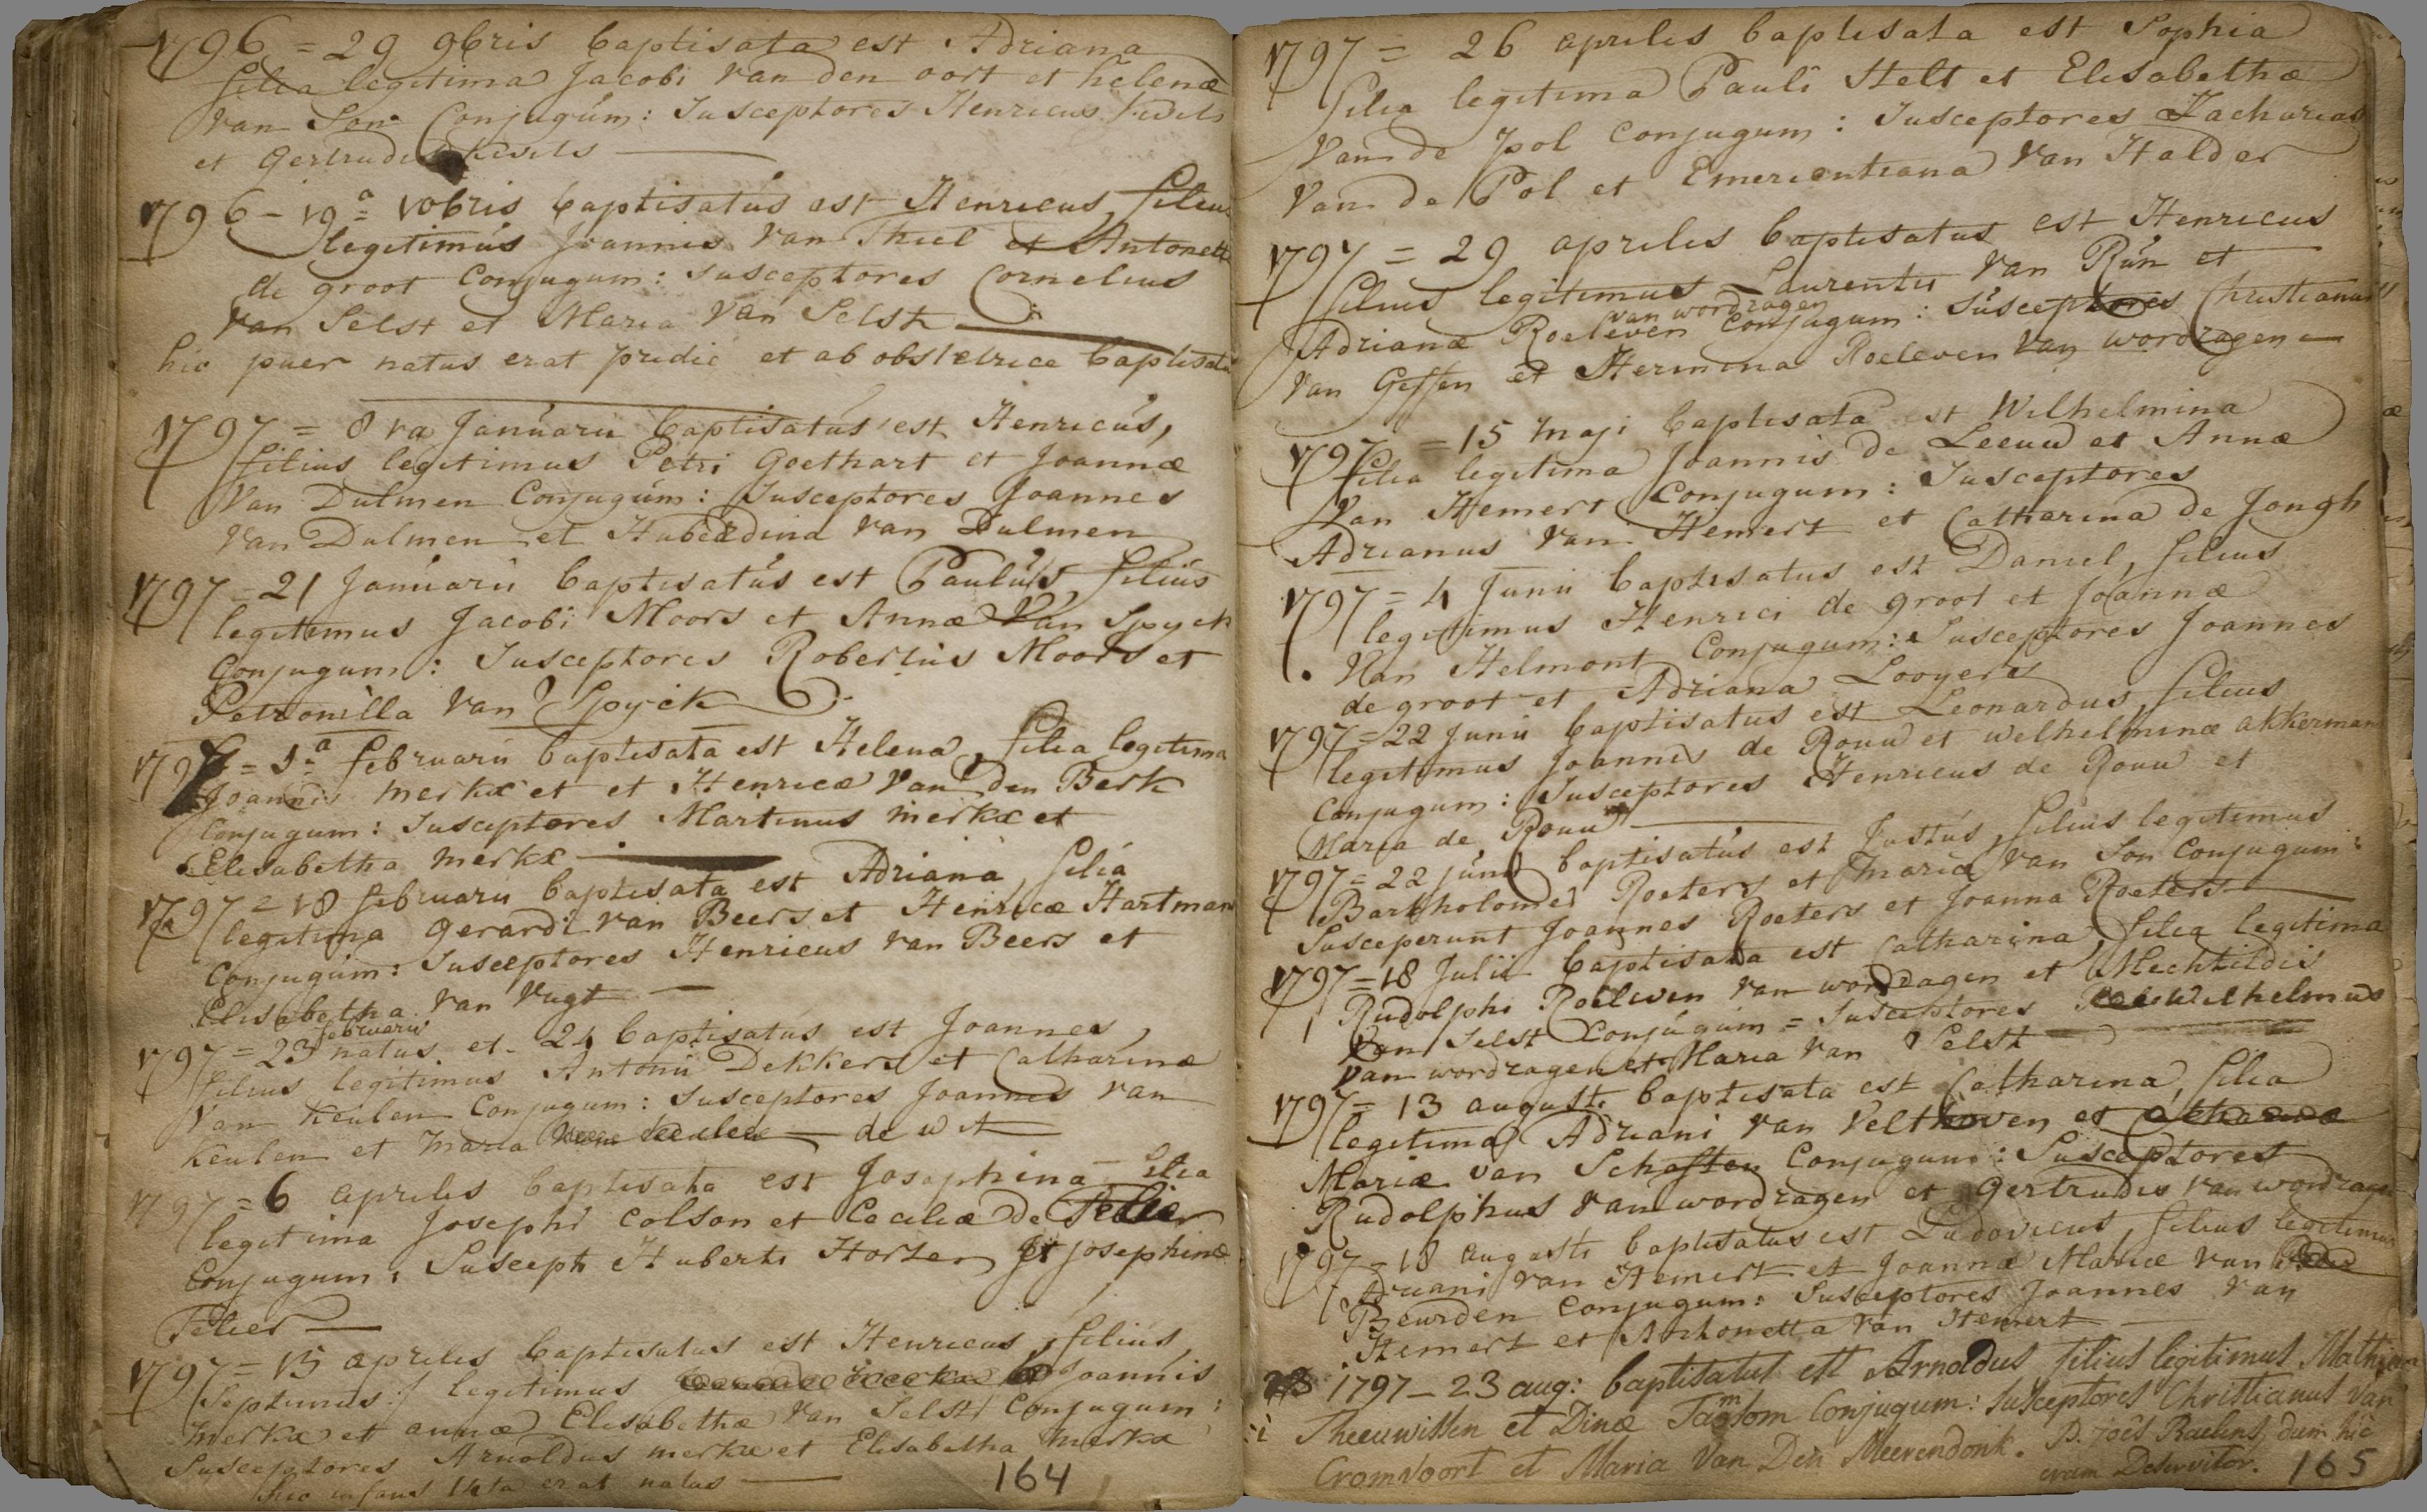 1796 = 29 9bris baptisata est Adriana
filia legitima Jacobi van den oort et helenæ
van Son Conjugúm: Susceptores Henricus
et Gertrudis
1796 - 19a = vobris baptisatús est Henricus, filius
legitimús Joannis van Thiel et Antonett
de groot Conjugum: Susceptores Cornelius
van Selst et Maria van Selst
hic puer natus erat pridie et ab obstetrice baptisatu
1797 = 8va Janúarii baptisatús est Henricús,
filius legitimus Petri Goethart et Joannæ
Van Dulmen Conjugúm: Susceptores Joannes
van Dulmen et Huberdina van Dulmen
1797 = 21 Janúarii baptisatús est Paulús, filiús
legitimus Jacobi Moors et Annæ Van Spyck
Conjugum: Susceptores Robertús Moors et
Petronilla van Spyck
1797 = 1a februarii baptisata est Helena, filia legitima
Joannis merkx et et Henricæ van den Berk
Conjugum: Susceptores Martinus merkx et
Elisabetha merkx
1797 = 18 februarii baptisata est Adriana, filia
legitima Gerardi van Beers et Henricæ Hartman
Conjugúm: Susceptores Henricus van Beers et
Elisabetha van Vugt
februarii
1797 = 23 natus et 24 baptisatús est Joannes,
filius legitimus Antonii Dekkers et Catharinæ
van Keulen Conjugum: Susceptores Joannes van
Keulen et maria van keulen de wit
1797 = 6 aprilis baptisata est Josephina filia
legitima Josephi Colson et Ceciliæ de
Conjugum, Suscepti Huberti Horten et Josephinæ
Felier
1797 = 15 aprilis baptisatus est Henricus, filiús,
Septimus:/ legitimus Joannis
merkx et annæ Elisabethæ van Selst Conjugum:
Susceptores Arnoldus merkx et Elisabetha merkx
hic infans ista erat natus
164
1797 = 26 aprilis baptisata est Sophia
filia legitima Pauli Stelt et Elisabethæ
Van de pol Conjugum: Susceptores Zacharias
Van de Pol et Emerentiana van Halder
1797 = 29 aprilis baptisatus est Henricus
filius legitimus Laurentii van Rún et
van wordragen
Adrianæ Roeleven Conjugum: Súsceptores Christianus
van Geffen et Hermina Roeleven van wordragen
1797 = 15 maji baptisata est Wilhelmina
filia legitima Joannis de Leeuw et Annæ
Van Hemert Conjugum: Susceptores
Adrianus van Hemert et Catharina de Jongh
1797 = 4 Junii baptisatus est Daniel, filius
legitimus Henrici de groot et Joannæ
Van Helmont Conjugum: Susceptores Joannes
de groot et Adriana Looyers
1797 = 22 Junii baptisatus est Leonardus, filius
legitimus Joannis de Rouw et welhelminæ akkermans
Conjugum: Susceptores Henricus de Rouw et
Maria de Rouw
1797 = 22 júnii baptisatús est Justús, filiús legitimus
Bartholomei Roeters et mariæ van Son Conjugum:
Susceperunt Joannes Roeters et Joanna Roeters
1797 = 18 Julii baptisata est Catharina, filia legitima
Rudolphi Roeleven van wordragen et Mechtildis
Van Selst Conjúgúm = Susceptores Wilhelmus
van wordragen et Maria van Selst
1797 = 13 augusti baptisata est Catharina, filia
legitima Adriani van Velthoven et
Mariæ van Schaften Conjugum: Susceptores
Rudolphus van wordragen et Gertrudis van wordragen
1797 = 18 augusti baptisatus est Ludovicus, filius legitimus
Adriani van Hemert et Joannæ Mariæ van
Beurden Conjugum: Susceptores Joannes van
Hemert et Anthonetta van Hemert
1797 - 23 aug: baptisatus est Arnoldus filius legitimus Mathiæ
Theeuwissen et Dinæ Conjugum: Susceptores Christianus van
Cromvoort et Maria Van Den Meerendonk. P. joês Raelens, dum hic
eram Deservitor. 165